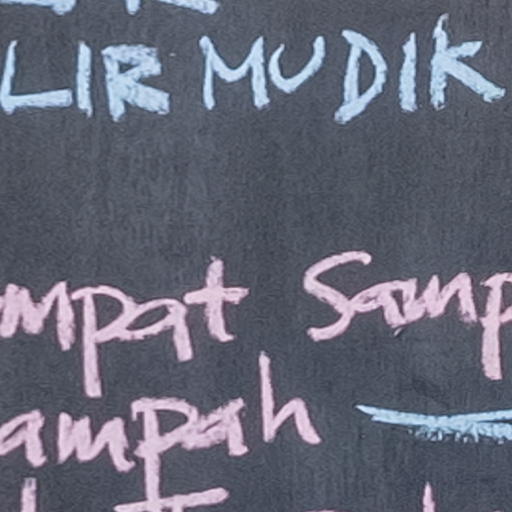 LIR MUDIK
mpat Samp
ampah